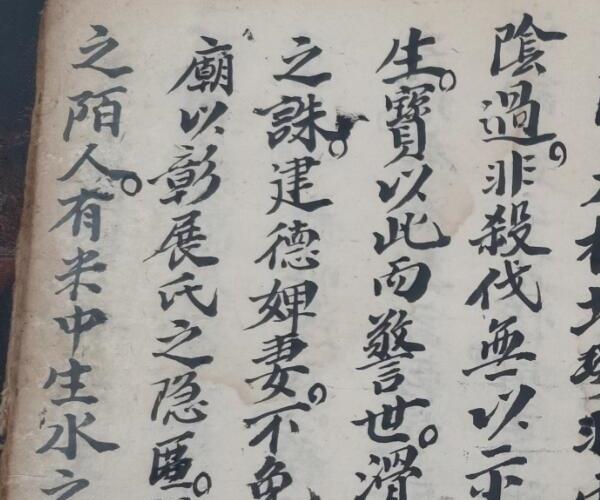 陰過。非殺伐無以示
生。寶以此而警世。滑
之誅。建德婢妻。不免
廟以彰展氏之隐匿。
之陌人。有中生水之